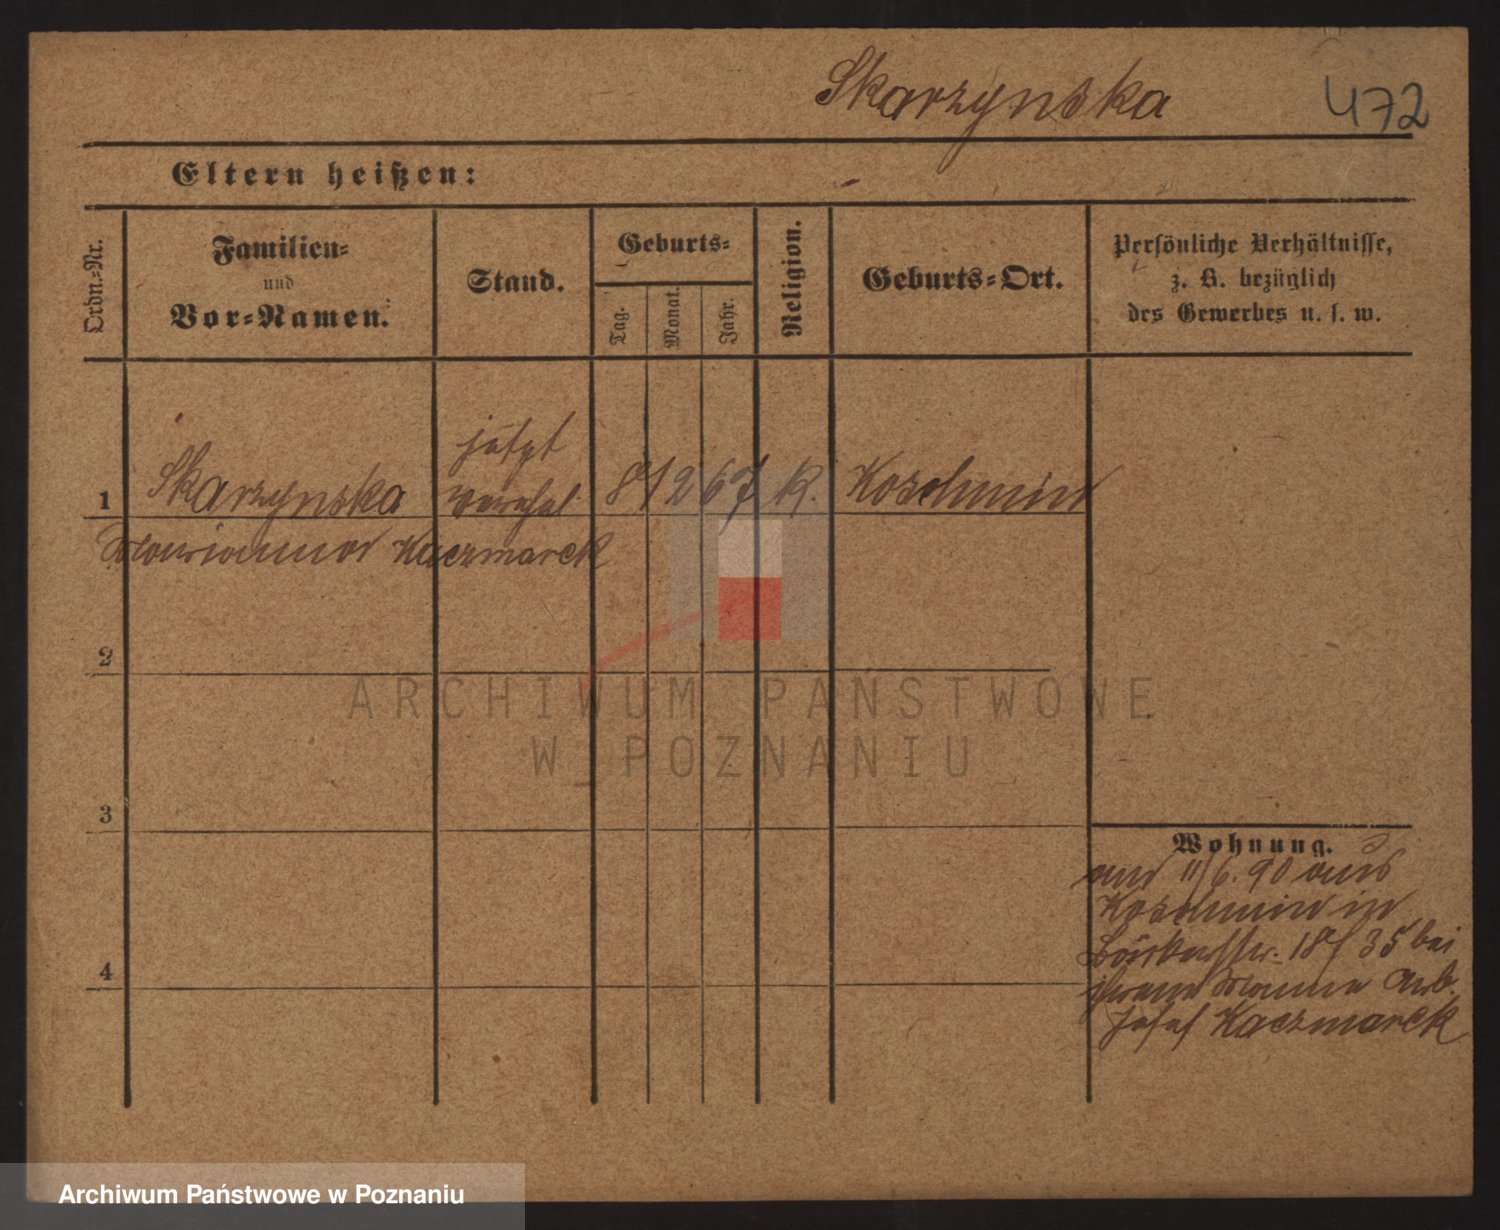 Skarzynska 472
Eltern heißen:
Ordn.-Nr.
Familien-
und
Vor-Namen.
Stand.
Geburts-
Tag.
Monat.
Jahr.
Religion.
Geburts-Ort.
Persönliche Verhältnisse,
z. B. bezüglich
des Gewerbes u. s. w.
jetzt
1 Skarzynska verehel. 8 12 67 K. Koschmin
Marianna Kaczmarek
2
3
4
Wohnung.
am 11/6. 90 aus
Koschmin in
18/35 bei
ihrem Manne Arb.
Josef Kaczmarek
ARCHIWUM PAŃSTWOWE
W POZNANIU
Archiwum Państwowe w Poznaniu